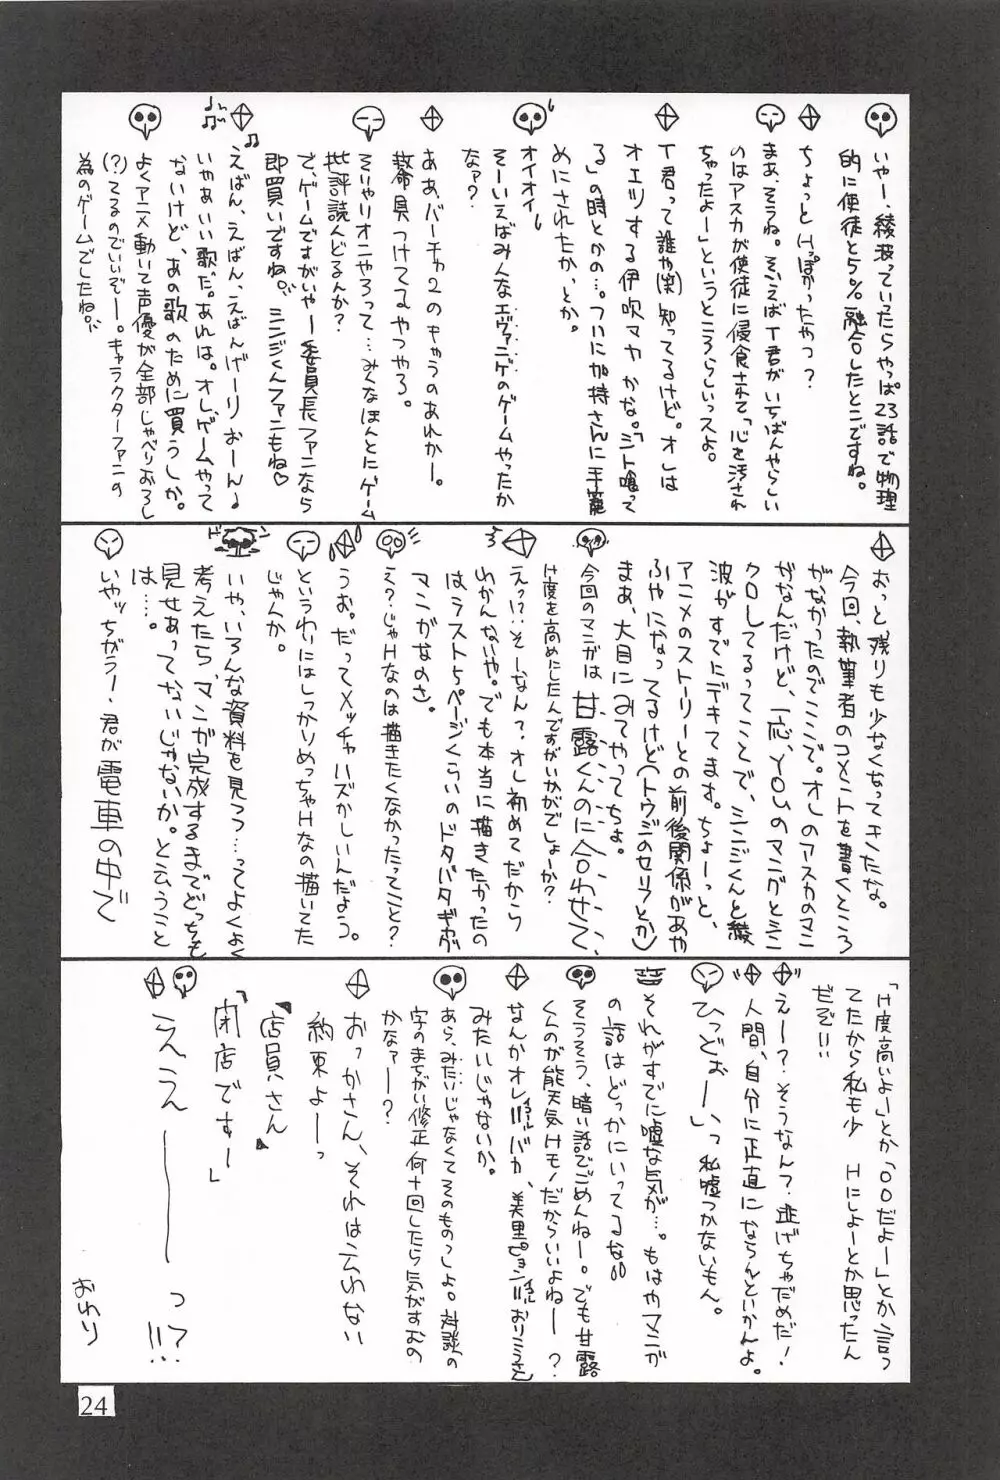 いやー、綾波っていったらやっぱ23話で物理
的に使徒と5%融合したとこですね。
ちょっとHっぽかったやつ？
まあ、そうね。そいえばT君がいちばんやらしい
のはアスカが使徒に侵食されて「心を汚され
ちゃったよー」というところらしいっスよ。
T君って誰や(笑)知ってるけど。オレは
オエツする伊吹マヤかな。「シト喰って
る」の時とかの…。ついに加持さんに手籠
めにされたか、とか。
オイオイ
そーいえばみんなエヴァンゲのゲームやったか
なァ？
ああ、バーチャ2のキャラのあれかー。
装甲具つけてるやつやろ。
そりゃリオニやろって…みんなほんとにゲーム
批評読んどるんか？
で、ゲームですがいやー委員長ファンなら
即買いですね。シンジくんファンもね♡
えばん、えばん、えばんげーりおーん♪
いやぁいい歌だ。あれは。オレ、ゲームやって
ないけど、あの歌のために買うしか。
よくアニメ動いて声優が全部しゃべりおろし
(？)てるのでいいぞー。キャラクターファンの
為のゲームでしたね。
おっと残りも少なくなってキたなァ。
今回、執筆者のコメントを書くところ
がなかったのでここで。オレのアスカのマン
ガなんだけど、一応、YOUのマンガとシン
クロしてるってことで、シンジくんと綾
波がすでにデキてます。ちょーっと、
アニメのストーリーとの前後関係があや
ふやになってるけど(トウジのセリフとか)
まあ、大目にみてやってちょ。
今回のマンガは甘露くんのに合わせて
H度を高めにしたんですがいかがでしょーか？
えっ!?そーなん？。オレ初めてだから
わかんないや。でも本当に描きたかったの
はラスト5ページくらいのドタバタギャグ
マンガなのさ。
え？じゃHなのは描きたくなかったってこと？
うお。だってメッチャハズかしいんだよう。
というわりにはしっかりめっちゃHなの描いてた
じゃんか。
いや、いろんな資料を見つつ…ってよくよく
考えたら、マンガ完成するまでどっちも
見せあってないじゃないか。と云うこと
は……。
いやッちがうー、君が電車の中で
「H度高いよー」とか「○○だよー」とか言っ
てたから私も少　Hにしよーとか思ったん
だぞ!!
えー？そうなん？。逃げちゃだめだ！
人間、自分に正直にならんといかんよ。
ひっどぉーいっ　私嘘つかないもん。
それがすでに嘘な気が…。もはやマンガ
の話はどっかにいってるな
そうそう、暗い話でごめんねー。でも甘露
くんのが能天気Hモノだからいいよねー？
なんかオレ=バカ、美里ピョン=おりこうさん
みたいじゃないか。
あら、みたいじゃなくてそのものっしょ。対談の
字のまちがい修正何十回したら気がすむの
かなァー？
おっかさん、それは云わない
約束よーっ
『店員さん』
「閉店ですー」
ええーーーっ!?
おわり
24